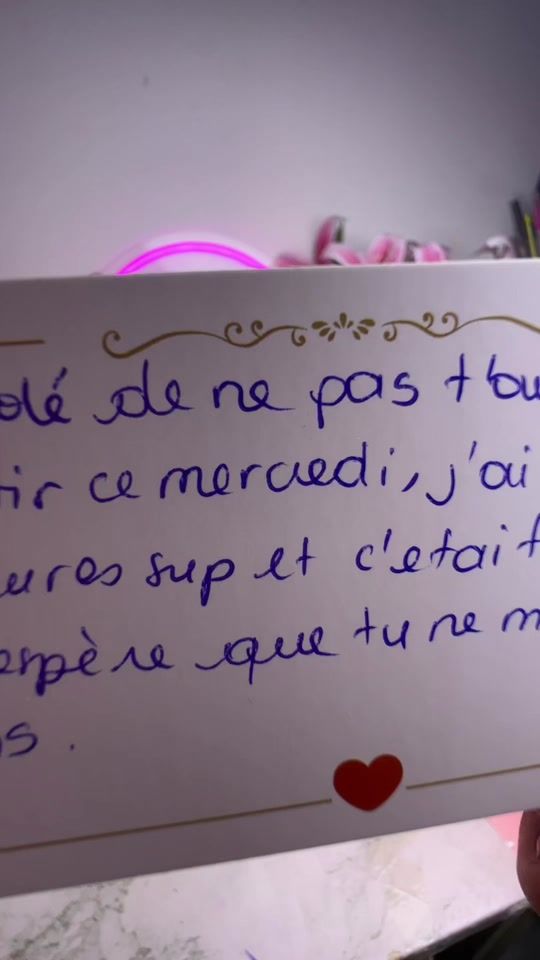 olé de ne pas t'ou
ir ce mercredi, j'ai
ures sup et c'etait
espère que tu ne m
s.